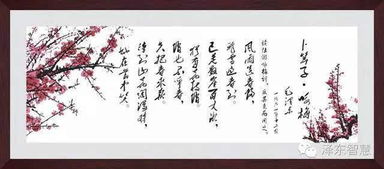 卜算子·咏梅
毛泽东
读陆游咏梅词，反其意而用之。
风雨送春归，
飞雪迎春到。
已是悬崖百丈冰，
犹有花枝俏。
俏也不争春，
只把春来报。
待到山花烂漫时，
她在丛中笑。
泽东智慧